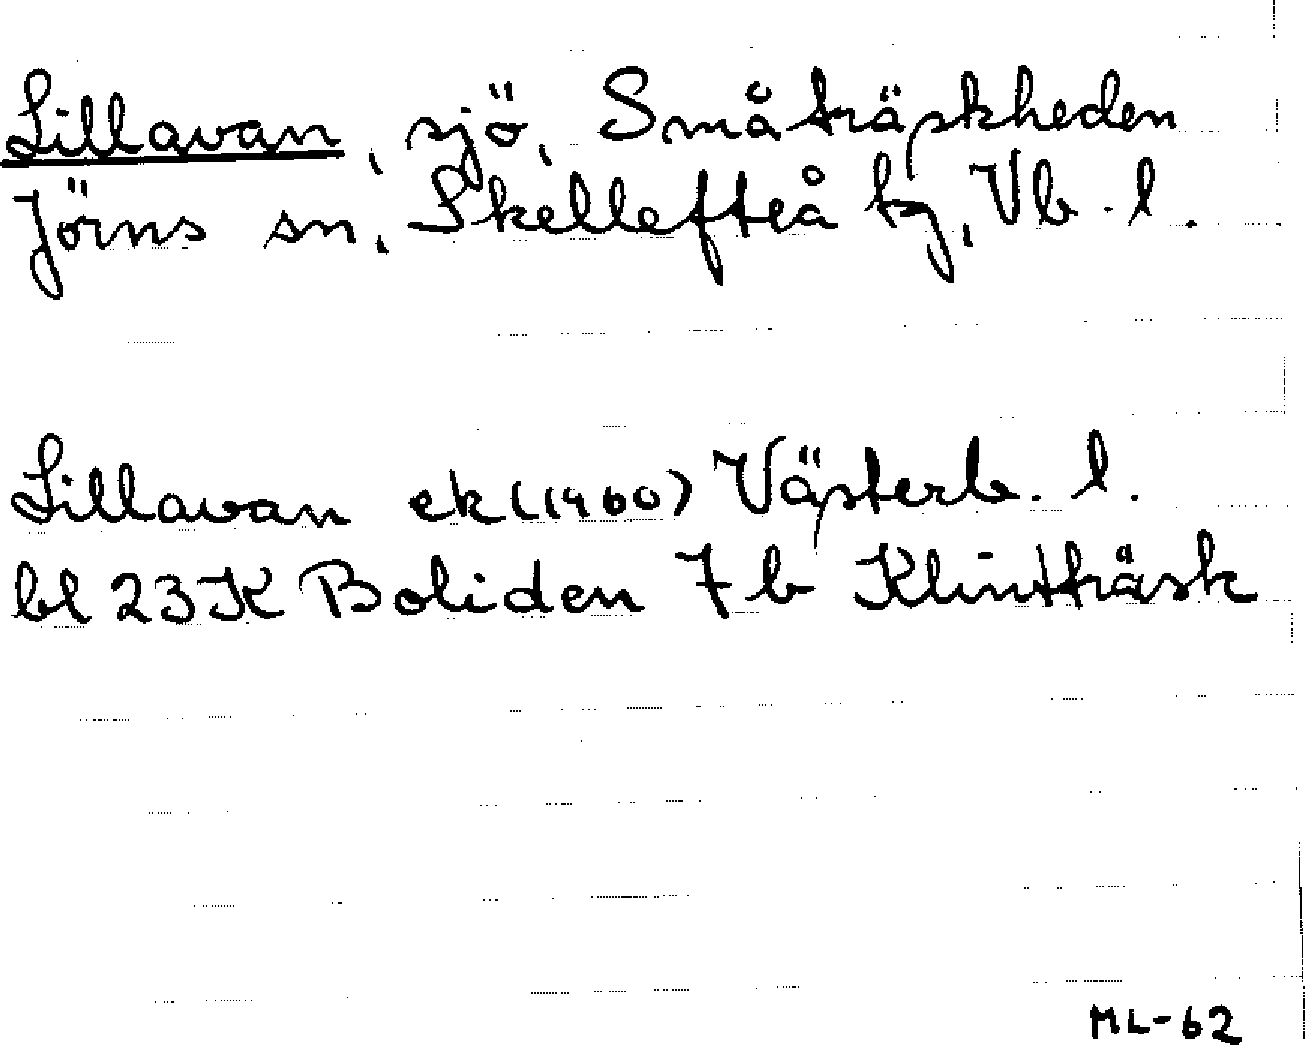 Lillavan, sjö, Småträskheden
Jörns sn, Skellefteå tg, Vb. l.
Lillavan ek (1960) Västerb. l.
bl 23K Boliden 7b Klintträsk
ML-62